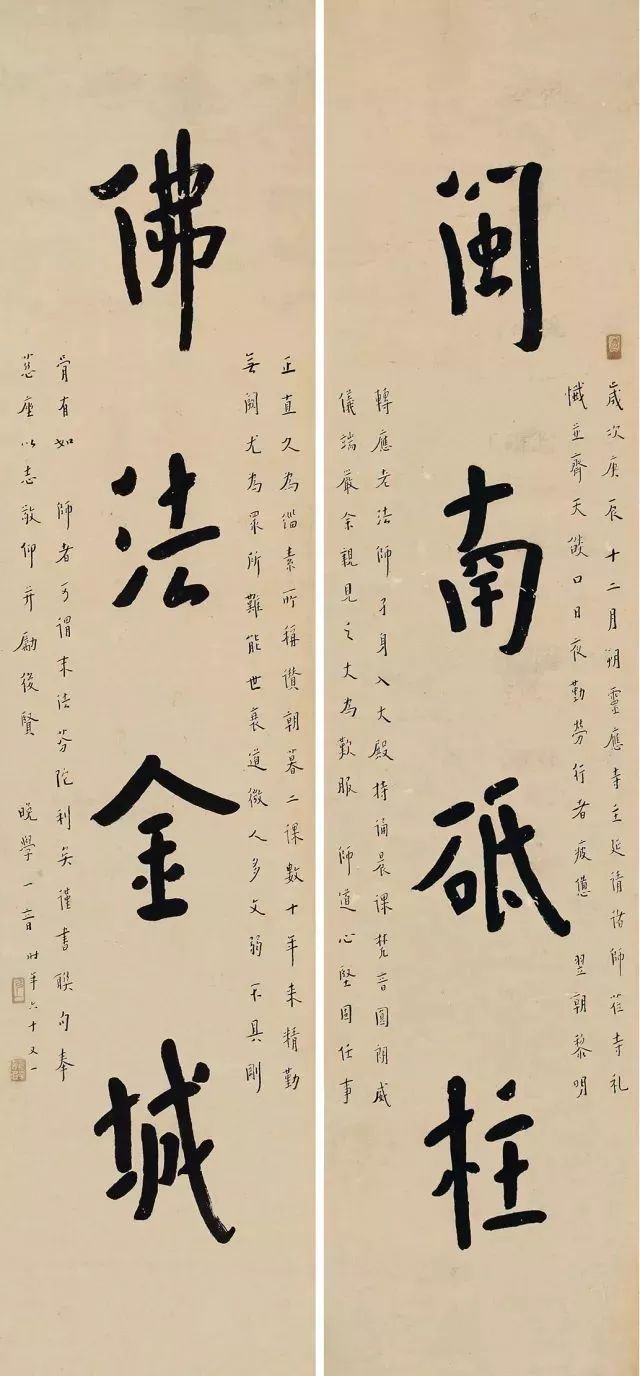 閩南砥柱
歲次庚辰十二月朔靈應寺主延請諸師蒞寺礼
懺並齊天燄口日夜勤勞行者疲憊 翌朝黎明
轉應老法師孑身入大殿持誦晨課梵音圓朗威
儀端嚴余親見之大為歎服 師道心堅固任事
佛法金城
正直久為緇素所稱讚朝暮二課數十年來精勤
無闕尤為眾所難能世衰道微人多文弱不具剛
骨有如 師者可謂末法芬陀利矣謹書聯句奉
慧座以志敬仰并勵後賢 晚學一音 時年六十又一